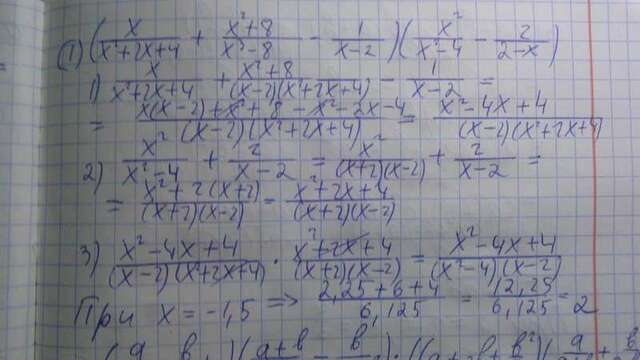 ① (x/(x²+2x+4) + (x²+8)/(x³-8) - 1/(x-2)) (x²/(x²-4) - 2/(2-x))
1) x/(x²+2x+4) + (x²+8)/((x-2)(x²+2x+4)) - 1/(x-2) =
= (x(x-2)+x²+8-x²-2x-4)/((x-2)(x²+2x+4)) = (x²-4x+4)/((x-2)(x²+2x+4))
2) x²/(x²-4) + 2/(x-2) = x²/((x+2)(x-2)) + 2/(x-2) =
= (x²+2(x+2))/((x+2)(x-2)) = (x²+2x+4)/((x+2)(x-2))
3) (x²-4x+4)/((x-2)(x²+2x+4)) · (x²+2x+4)/((x+2)(x-2)) = (x²-4x+4)/((x²-4)(x-2))
При x = -1,5 => (2,25+6+4)/6,125 = 12,25/6,125 = 2